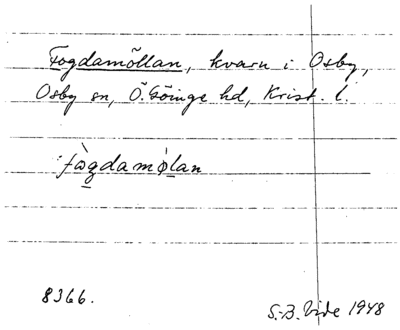 Fogdamöllan, kvarn i Osby,
Osby sn, Ö. Göinge hd, Krist. l.
fò̱gdamø̀lan
8366.
S.-B. Vide 1948